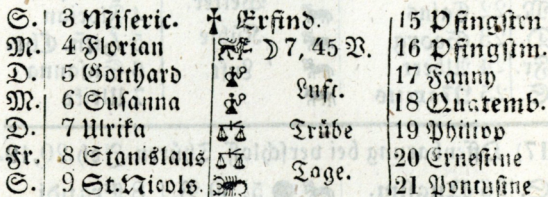 S. 3 Miseric. ✝ Erfind. 15 Pfingsten
M. 4 Florian ☽ 7, 45 V. 16 Pfingstm.
D. 5 Gotthard 17 Fanny
Luft.
M. 6 Susanna 18 Quatemb.
D. 7 Ulrika ♎ Trübe 19 Philipp
Fr. 8 Stanislaus ♎ 20 Ernestine
Tage.
S. 9 St. Nicols. ♏ 21 Pontusine